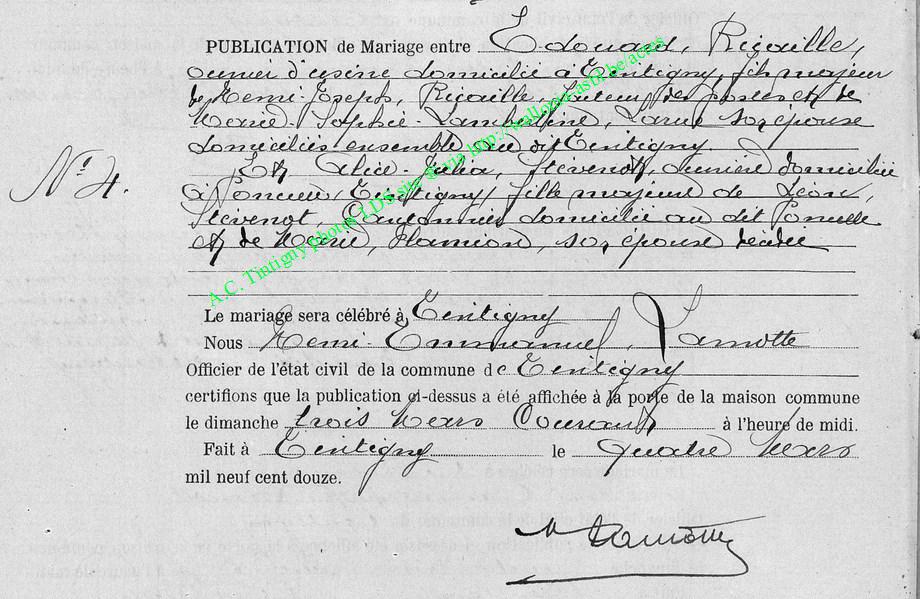 PUBLICATION de Mariage entre Edouard, Rigaille,
ouvrier d'usine domicilié à Tintigny, fils majeur
de Henri-Joseph, Rigaille, facteur des postes et de
Marie-Sophie-Lambertine, son épouse
domiciliés ensemble au dit Tintigny
Et Alice Julia, Stévenot, domiciliée
N° 4.
à Poncelle, Tintigny, fille majeure de Léon,
Stévenot, Cantonnier, domicilié au dit Poncelle
et de Marie, son épouse décédée
A.C. Tintigny photos LDS site & via http://wallonia.asbl.be/actes
Le mariage sera célébré à Tintigny
Nous Henri-Emmanuel, Lamotte
Officier de l'état civil de la commune de Tintigny
certifions que la publication ci-dessus a été affichée à la porte de la maison commune
le dimanche trois Mars Courant à l'heure de midi.
Fait à Tintigny le quatre Mars
mil neuf cent douze.
H Lamotte